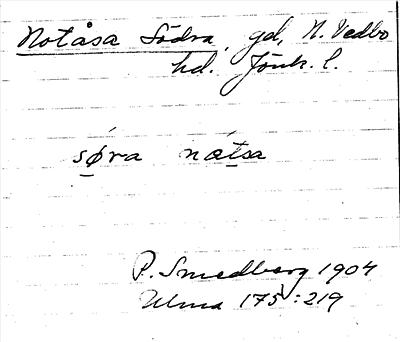 Notåsa Södra, gd, N. Vedbo
hd. Jönk. l.
sǿra nǽtsa
P. Smedberg 1904
Ulma 175:219